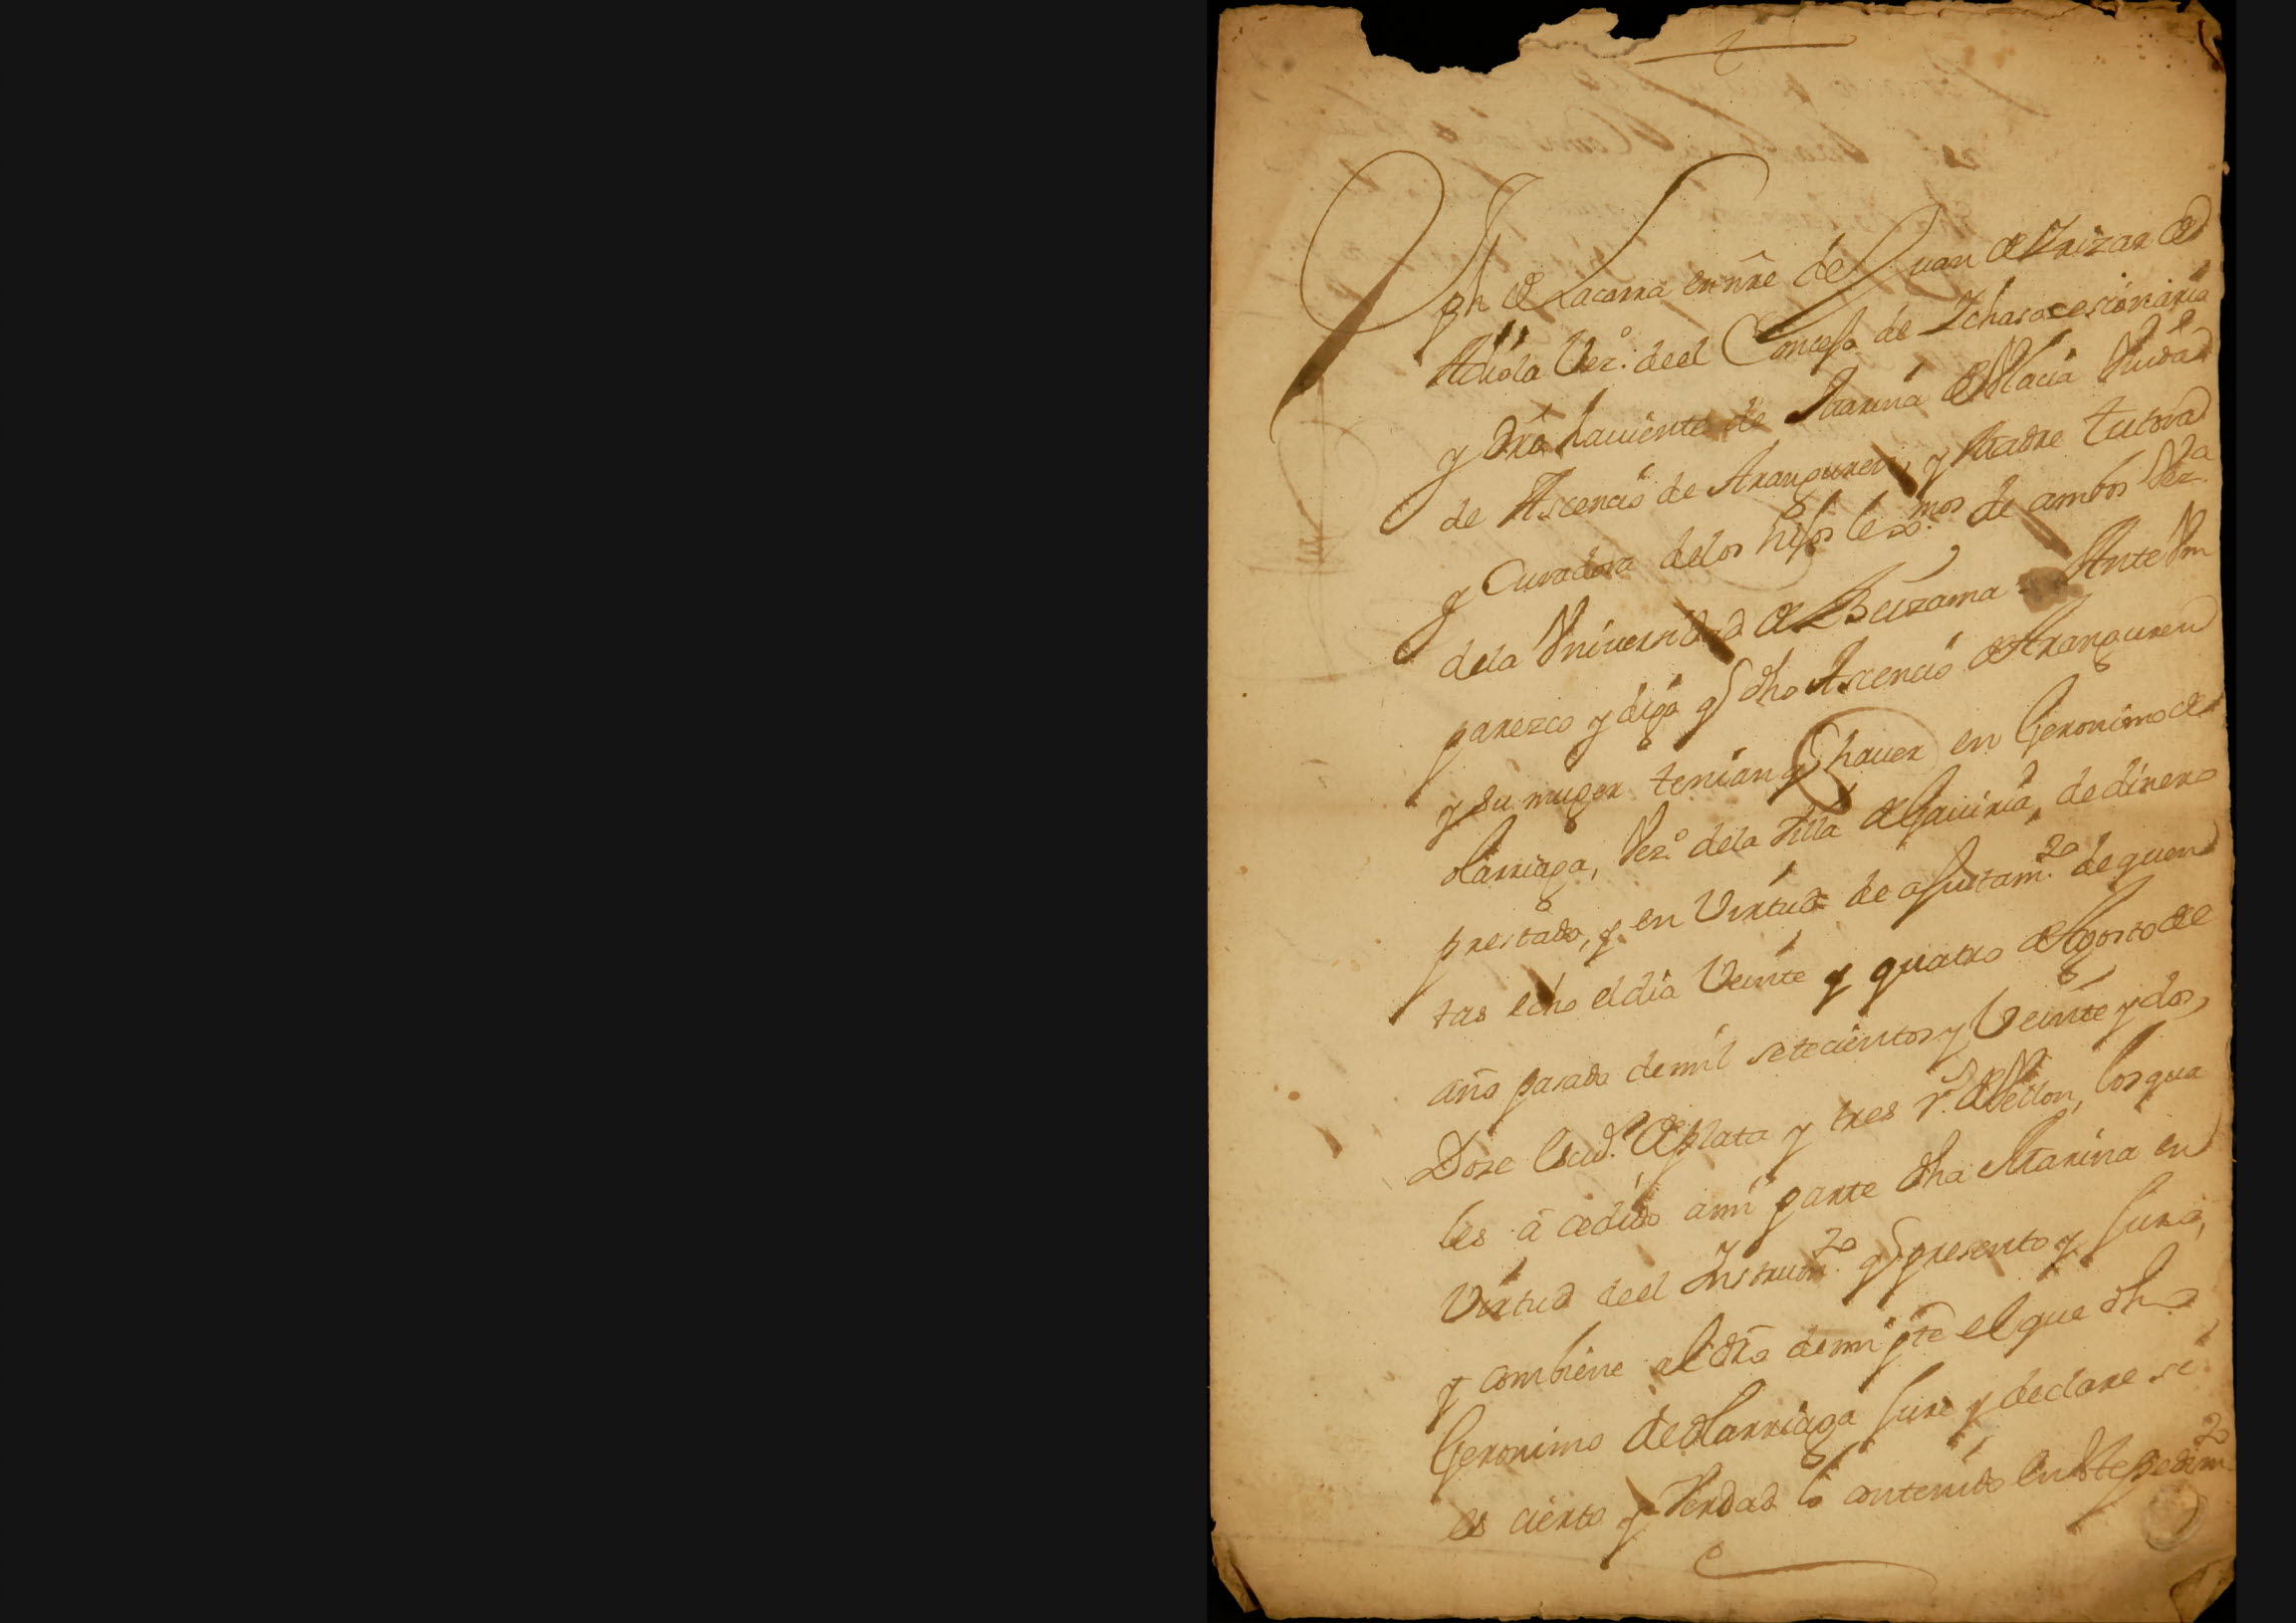 Jph de Lacarra en nre de Juan de Yrizar de
Aduola Vez.o de el Concejo de Ychaso cesionario
y dro haviente de Marina de Macia Viuda
de Ascencio de Aranguren, y Madre tutora
y Curadora de los hijos lexmos. de ambos Vez.a
de la Vniversidad de Beizama = Ante Vm
parezco y digo q dho Ascencio de Aranguren
y su muger tenian q haver en Geronimo de
olarriaga, Vez.o de la Villa de Gaviria, de dinero
prestado, y en Virtud de ajustam.to de quen
tas echo el dia Veinte y quatro de Agosto de el
año pasado de mil setecientos y Veinte y dos,
Doze Escud.s de plata y tres r.s de Vellon, los qua
les â cedido a mi parte dha Marina en
Virtud de el Instrum.to q presento y Juro,
y combiene al dro de mi pte el que dho
Geronimo de olarriaga Jure y declare si
es cierto y Verdad lo contenido en este pedim.to